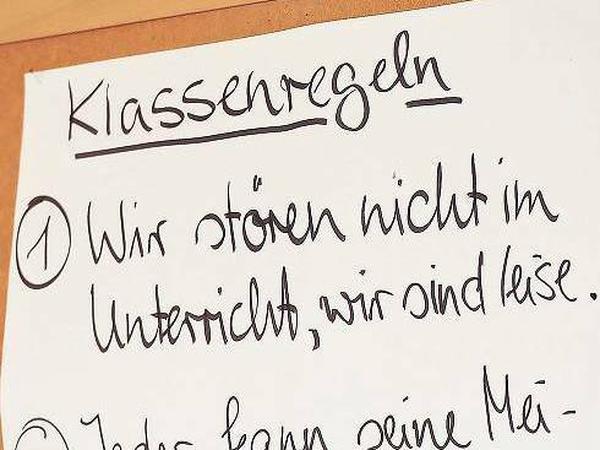 Klassenregeln
① Wir stören nicht im
Unterricht, wir sind leise.
② Jeder kann seine Mei-